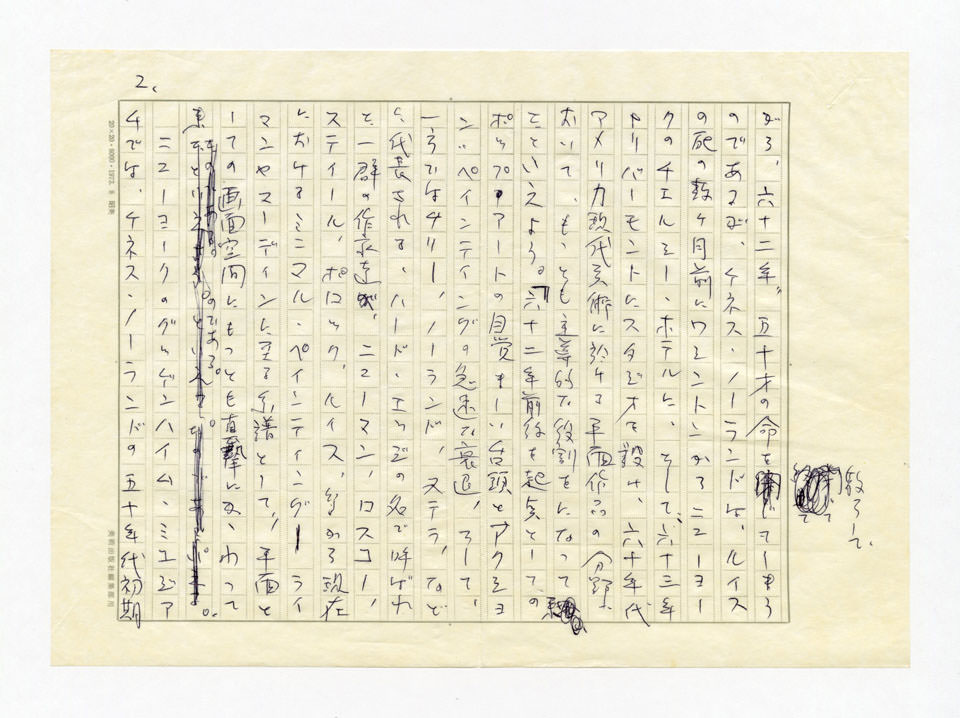 2.
がら、六十二年、五十才の命を散らして、しまう
のであるが、ケネス・ノーランドは、ルイス
の死の数ヶ月前にワシントンからニューヨー
クのチェルシー・ホテルに、そして、六十三年
にバーモントにスタジオを設け、六十年代
アメリカ現代美術に於ける平面作品の分野に
おいて、もっとも主導的な役割をになって
といえよう。六十二年前後を起点としての
ポップ・アートの目覚しい台頭とアクショ
ン・ペインティングの急速な衰退、そして、
一方ではケリー、ノーランド、ステラ、など
に代表される、ハード・エッジの名で呼ばれ
た一群の作家達が、ニューマン、ロスコー、
スティール、ポロック、ルイス、から現在
におけるミニマル・ペインティング ライ
マンやマーディンに至る系譜として、平面と
しての画面空間にもっとも直摯に、かかわって
来たのである。
ニューヨークのグッゲンハイム・ミュージア
ムでは、ケネス・ノーランドの五十年代初期
20×20・1000・1972. 8 昭和
美術出版社編集部用